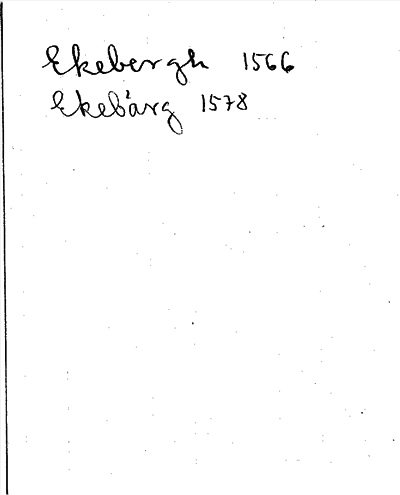 Ekebergh 1566
Ekebärg 1578